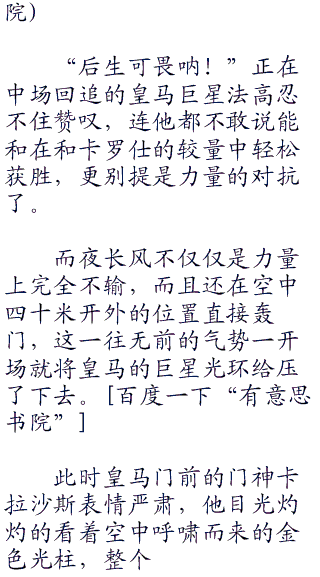 院）
“后生可畏呐！”正在
中场回追的皇马巨星法高忍
不住赞叹，连他都不敢说能
和在和卡罗仕的较量中轻松
获胜，更别提是力量的对抗
了。
而夜长风不仅仅是力量
上完全不输，而且还在空中
四十米开外的位置直接轰
门，这一往无前的气势一开
场就将皇马的巨星光环给压
了下去。[百度一下“有意思
书院”]
此时皇马门前的门神卡
拉沙斯表情严肃，他目光灼
灼的看着空中呼啸而来的金
色光柱，整个